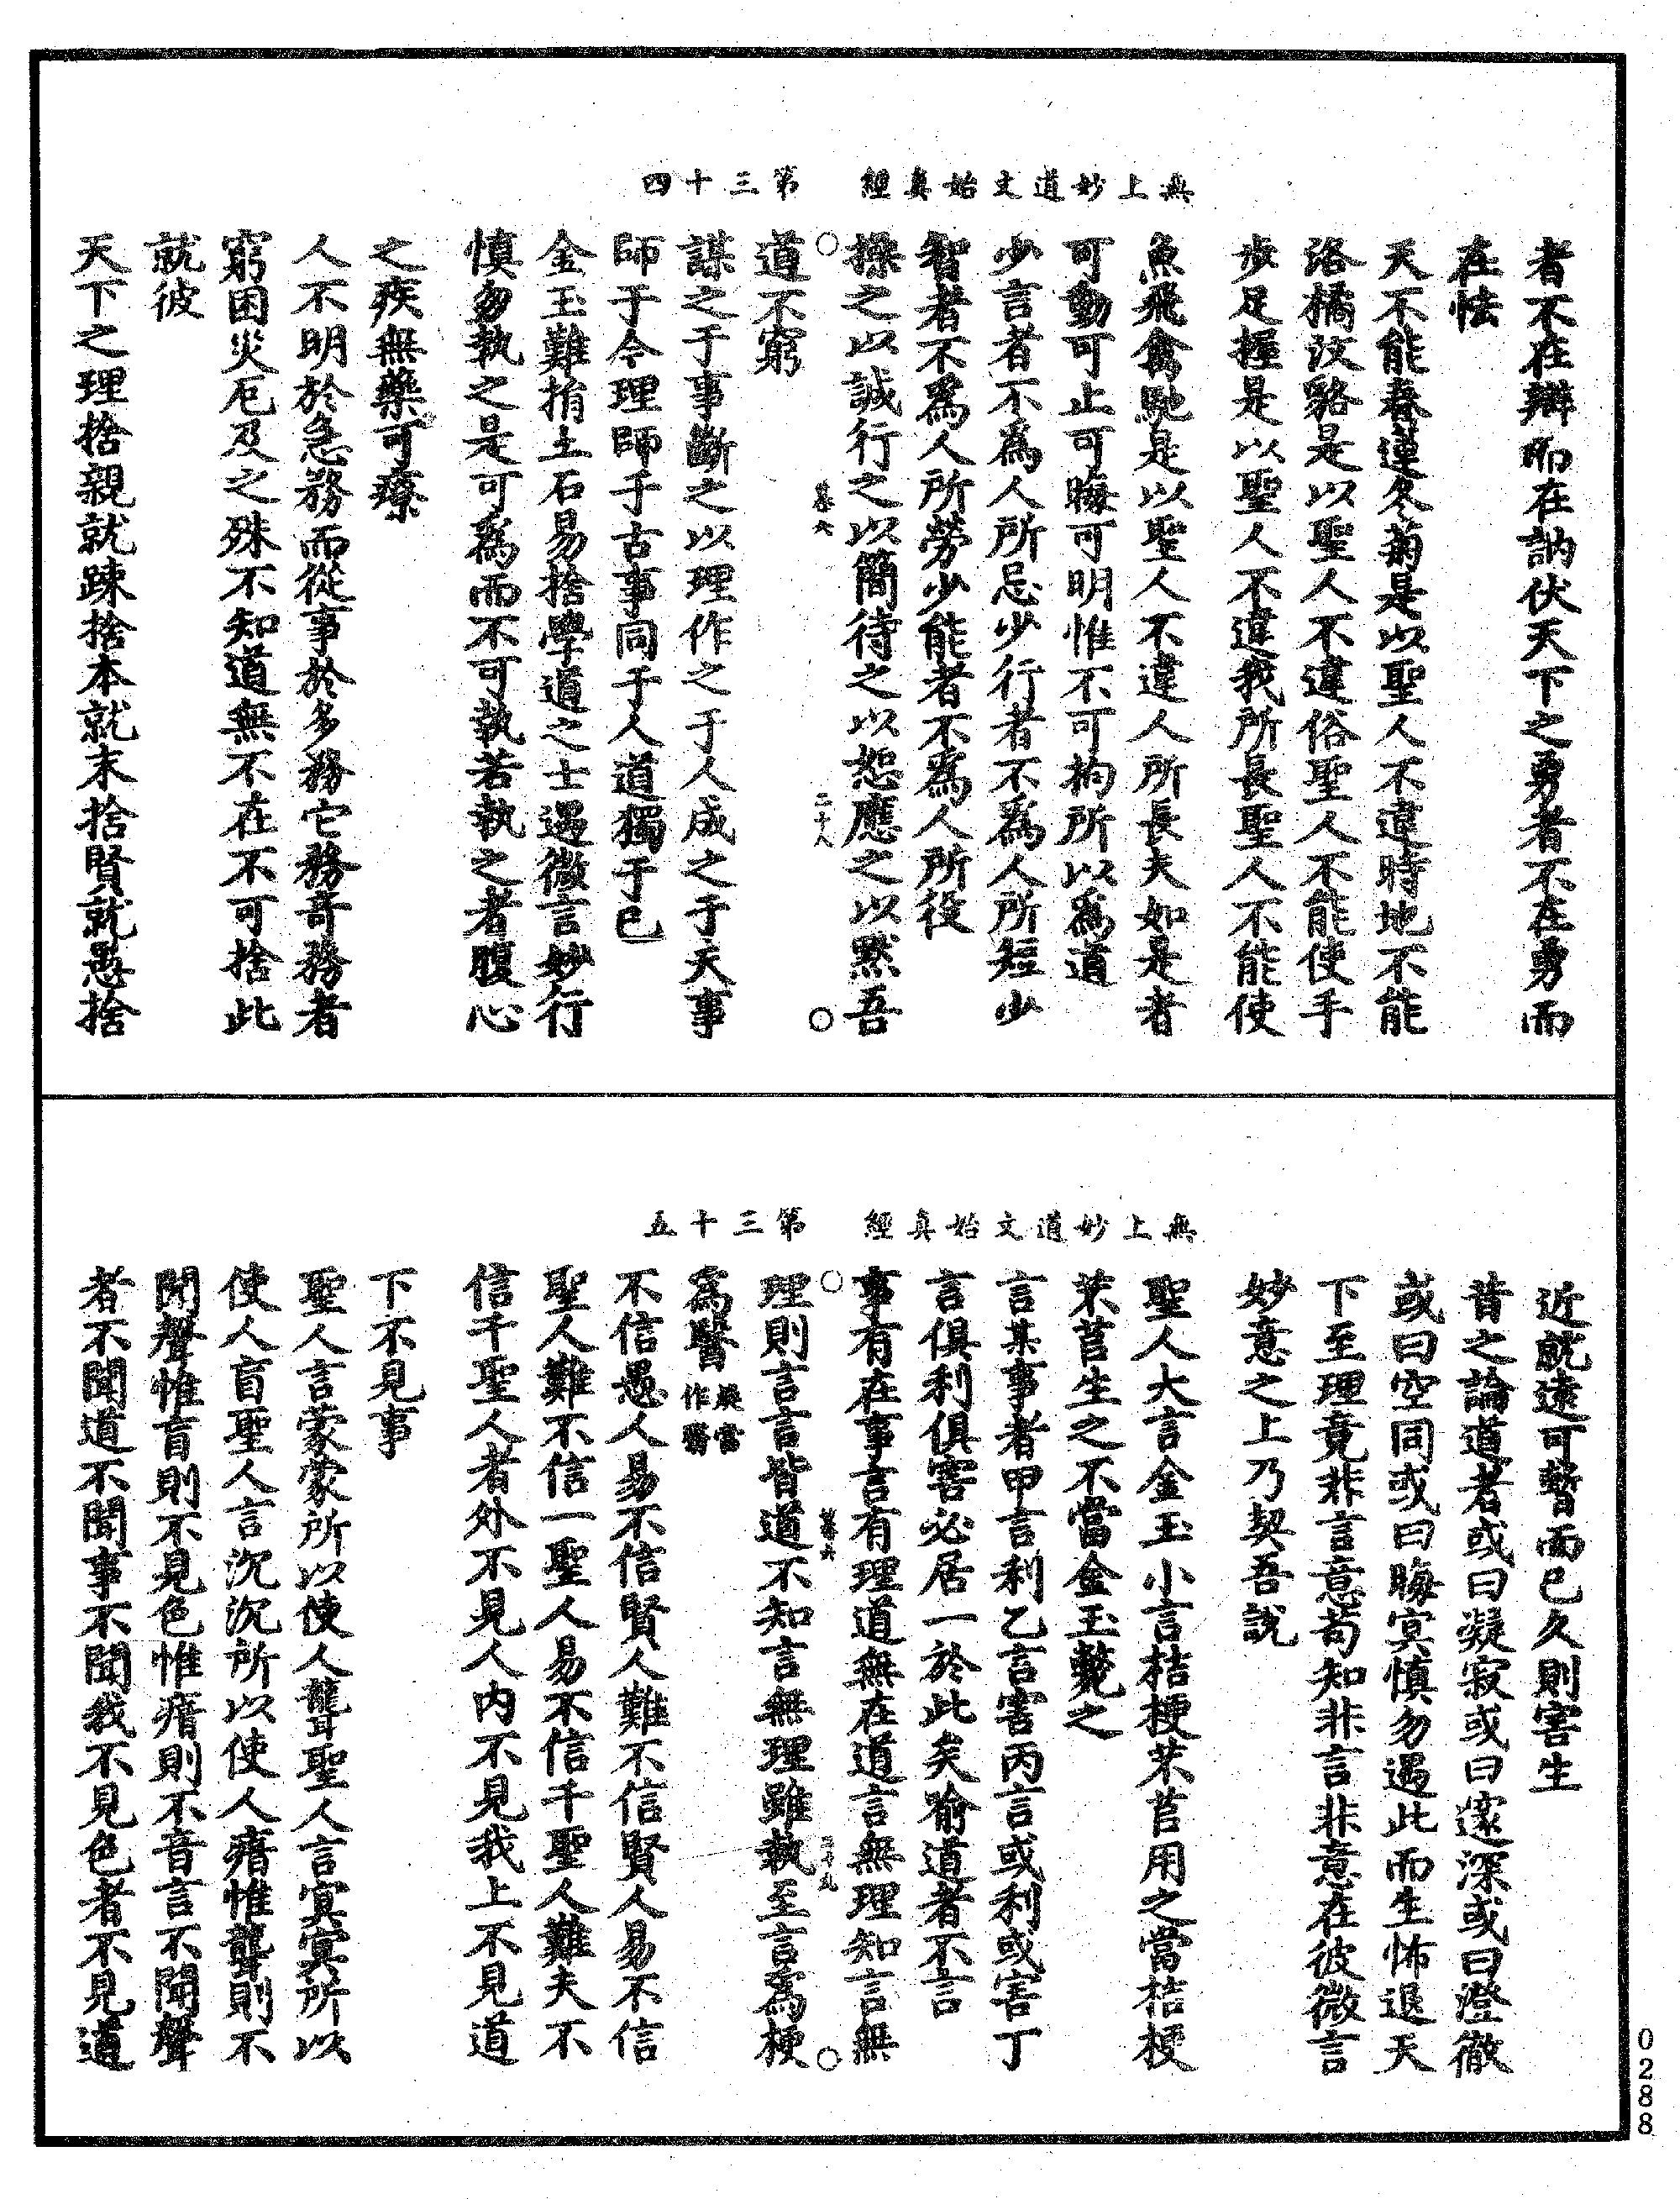 無上妙道文始真經　第三十四
者不在辯而在訥伏天下之勇者不在勇而
在怯
天不能春蓮冬菊是以聖人不違時地不能
洛橘汶貉是以聖人不違俗聖人不能使手
步足握是以聖人不違我所長聖人不能使
魚飛禽馳是以聖人不違人所長夫如是者
可動可止可晦可明惟不可拘所以為道
少言者不為人所忌少行者不為人所短少
智者不為人所勞少能者不為人所役
操之以誠行之以簡待之以恕應之以默吾
卷六　二十八
道不窮
謀之于事斷之以理作之于人成之于天事
師于今理師于古事同于人道獨于已
金玉難捐土石易捨學道之士遇微言妙行
慎勿執之是可為而不可執若執之者腹心
之疾無藥可療
人不明於急務而從事於多務它務奇務者
窮困災厄及之殊不知道無不在不可捨此
就彼
天下之理捨親就踈捨本就末捨賢就愚捨
無上妙道文始真經　第三十五
近就遠可暫而已久則害生
昔之論道者或曰凝寂或曰邃深或曰澄徹
或曰空同或曰晦冥慎勿遇此而生怖退天
下至理竟非言意苟知非言非意在彼微言
妙意之上乃契吾說
聖人大言金玉小言桔梗芣苢用之當桔梗
芣苢生之不當金玉斃之
言某事者甲言利乙言害丙言或利或害丁
言俱利俱害必居一於此矣喻道者不言
事有在事言有理道無在道言無理知言無
卷六　二十九
理則言言皆道不知言無理雖執至言為梗
為翳 疑當作翳
不信愚人易不信賢人難不信賢人易不信
聖人難不信一聖人易不信千聖人難夫不
信千聖人者外不見人內不見我上不見道
下不見事
聖人言蒙蒙所以使人聾聖人言冥冥所以
使人盲聖人言沉沉所以使人瘖惟聾則不
聞聲惟盲則不見色惟瘖則不音言不聞聲
者不聞道不聞事不聞我不見色者不見道
0288